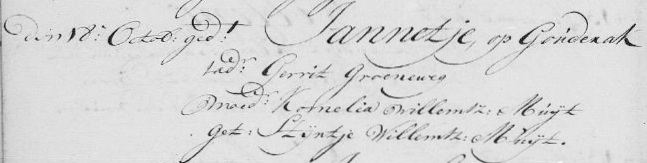 den 18: Octob: gedt Jannetje, op Gouderak
vadr: Gerrit Groeneweg
moedr: Kornelia Willemtz: Muijt
get: Stijntje Willemtz: Muijt.